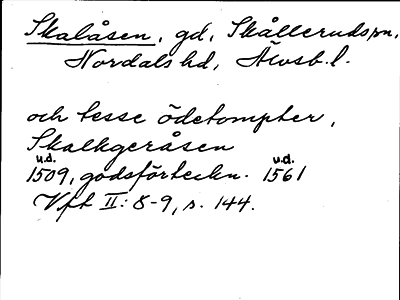 Skalåsen, gd, Skållerudspn,
Nordals hd, Älvsb. l.
och tesse ödetompter,
Skalkgeråsen
u.d. u.d.
1509, godsförteckn. 1561
Vft II: 8-9, s. 144.